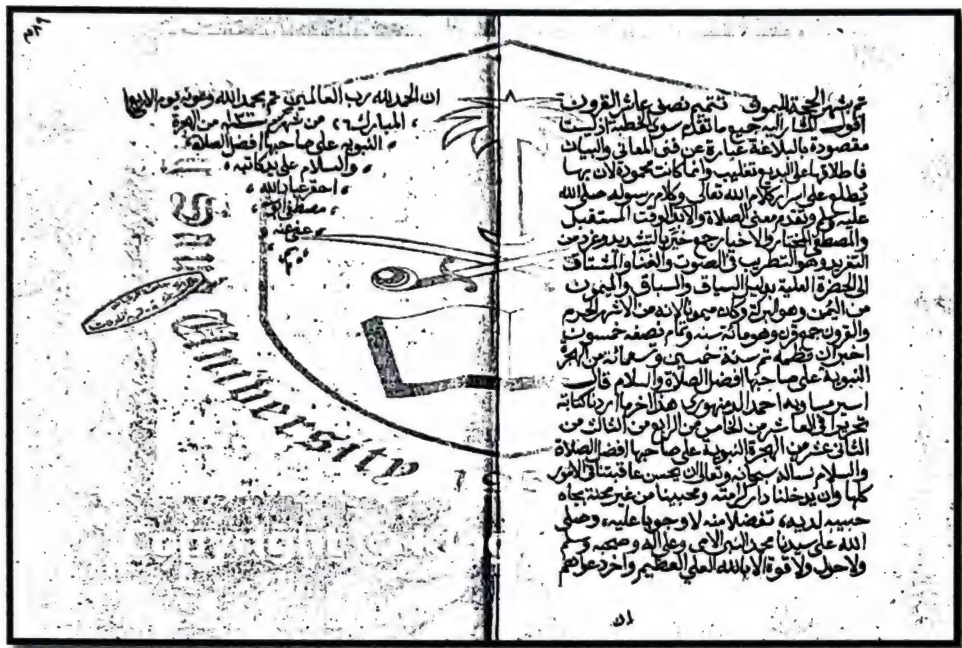 تم بشهر الحجة الميمون تتميم نصف عاشر القرون
أقول المشار إليه جميع ما تقدم سوى الخطبة إذ ليست
مقصودة بالبلاغة عبارة عن فني المعاني والبيان
فاطلاقها على البديع تغليب وإنما كانت محمودة لأن بها
يطلع على اسرار كلام الله تعالى وكلام رسوله صلى الله
عليه وسلم وتقدم معنى الصلاة والأبد الوقت المستقبل
والمصطفى المختار والأخيار جمع خير بالتشديد وغرد من
التغريد وهو التطريب في الصوت والغناء والمشتاق
الى الحضرة العلية بدليل السياق والسباق والميمون
من اليمن وهو البركة وكان ميمونا لأنه من الأشهر الحرم
والقرون جمع قرن وهو مائة سنة وتمام نصفه خمسون
اخبر أن نظمه تم سنة خمسين وتسعمائة من الهجرة
النبوية على صاحبها افضل الصلاة والسلام قال
اسير مساويه احمد الدمنهوري هذا آخر ما أردنا كتابته
تحريرا في العاشر من الخامس من الرابع من الثالث من
الثاني عشر من الهجرة النبوية على صاحبها افضل الصلاة
والسلام نساله سبحانه وتعالى أن يحسن عاقبتنا في الأمور
كلها وأن يدخلنا دار كرامته ومحبينا من غير محنة بجاه
حبيبه لديه تفضلا منه لا وجوبا عليه وصلى
الله على سيدنا محمد النبي الأمي وعلى آله وصحبه وسلم
ولا حول ولا قوة إلا بالله العلي العظيم وآخر دعواهم
ان
٨٩م
ان الحمد لله رب العالمين تم بحمد الله وعونه يوم الاربعا
المبارك ٦ من شهر من الهجرة
النبوية على صاحبها افضل الصلاة
والسلام على يد كاتبه
احقر عباد الله
مصطفى
عفي عنه
م
University
Copyright ©